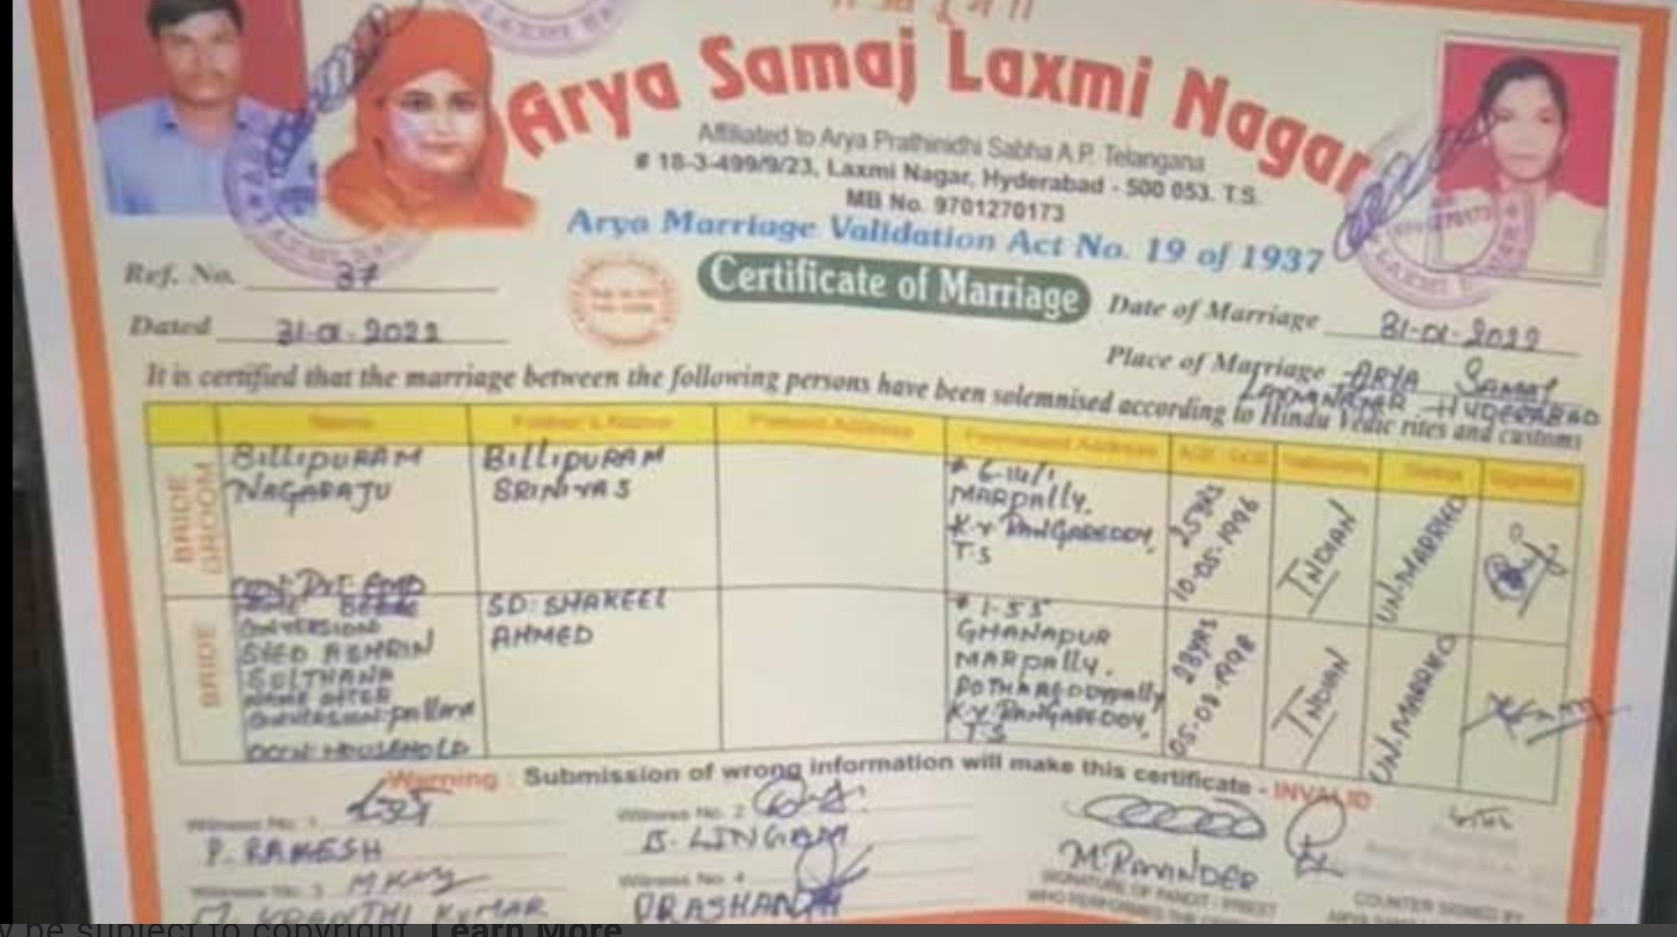 Arya Samaj Laxmi Nagar
Affiliated to Arya Prathinidhi Sabha A.P. Telangana
# 18-3-499/9/23, Laxmi Nagar, Hyderabad - 500 053. T.S.
MB No. 9701270173
Arya Marriage Validation Act No. 19 of 1937
Certificate of Marriage
Ref. No. 37
Dated 31-01-2022
Date of Marriage 31-01-2022
Place of Marriage ARYA SAMAJ
LAXMINAGAR HYDERABAD
It is certified that the marriage between the following persons have been solemnised according to Hindu Vedic rites and customs
Name Father's Name Present Address Permanent Address Nationality Status Signature
BRIDE GROOM
BILLIPURAM
NAGARAJU
OCCN: PVT. EMP
BILLIPURAM
SRINIVAS
# 6-14/1
MARPALLY.
K.V RANGAREDDY,
T.S
25YRS
10-05-1996
INDIAN
UN-MARRIED
BRIDE
CONVERSION
SYED ASHRIN
SULTHANA
NAME AFTER
CONVERSION: Pallavi
OCCN: HOUSEHOLD
SD: SHAKEEL
AHMED
# 1-55
GHANAPUR
MARPALLY.
POTHAREDDYPALLY
K.V RANGAREDDY,
T.S
23YRS
INDIAN
UN-MARRIED
Warning : Submission of wrong information will make this certificate - INVALID
Witness No. 1
P. RAMESH
Witness No. 2
B. LINGAM
Witness No. 3
KRANTHI KUMAR
Witness No. 4
PRASHANTH
M. RAVINDER
SIGNATURE OF PANDIT - PRIEST
WHO PERFORMED THE
COUNTER SIGNED BY
y be subject to copyright. Learn More